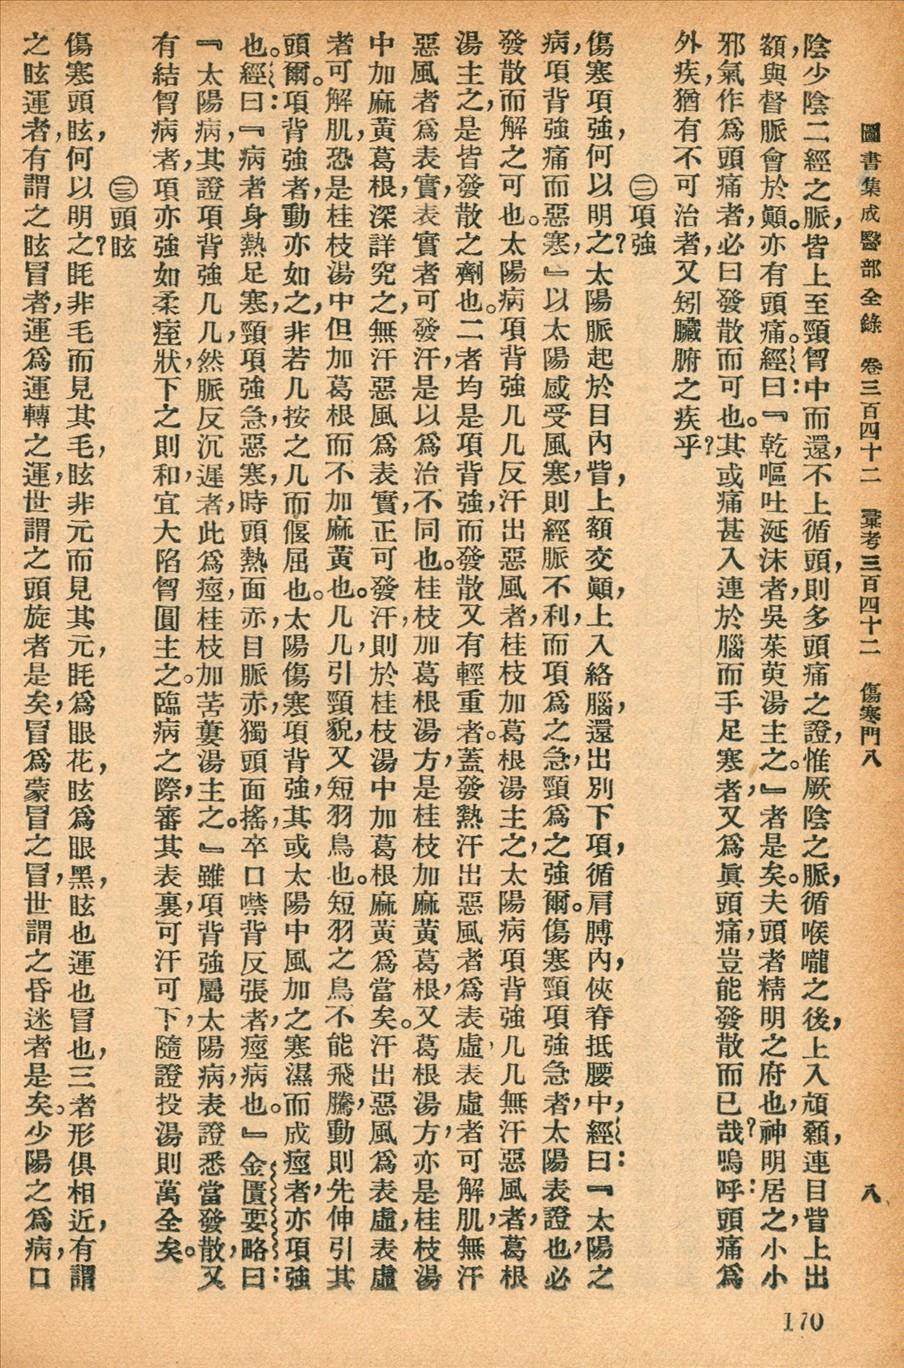 圖書集成醫部全錄　卷三百四十二　彙考三百四十二　傷寒門八　八
陰少陰二經之脈，皆上至頸胷中而還，不上循頭，則多頭痛之證，惟厥陰之脈，循喉嚨之後，上入頏顙，連目眥上出
額，與督脈會於顚。亦有頭痛。經曰：『乾嘔吐涎沫者，吳茱萸湯主之。』者是矣。夫頭者精明之府也，神明居之，小小
邪氣作爲頭痛者，必曰發散而可也。其或痛甚入連於腦而手足寒者，又爲眞頭痛，豈能發散而已哉？嗚呼：頭痛爲
外疾，猶有不可治者，又矧臟腑之疾乎？
㊂項強
傷寒項強，何以明之？太陽脈起於目內眥，上額交顚，上入絡腦，還出別下項，循肩膊內，俠脊抵腰中，經曰：『太陽之
病，項背強痛而惡寒，』以太陽感受風寒，則經脈不利，而項爲之急，頸爲之強爾。傷寒頸項強急者，太陽表證也，必
發散而解之可也。太陽病項背強几几反汗出惡風者，桂枝加葛根湯主之，太陽病項背強几几無汗惡風者，葛根
湯主之，是皆發散之劑也。二者均是項背強，而發散又有輕重者。蓋發熱汗出惡風者爲表虛，表虛者可解肌，無汗
惡風者爲表實，表實者可發汗，是以爲治不同也。桂枝加葛根湯方，是桂枝加麻黃葛根，又葛根湯方，亦是桂枝湯
中加麻黃葛根，深詳究之，無汗惡風爲表實，正可發汗，則於桂枝湯中加葛根麻黃爲當矣。汗出惡風爲表虛，表虛
者可解肌，恐是桂枝湯中但加葛根而不加麻黃也。几几，引頸貌，又短羽鳥也。短羽之鳥不能飛騰，動則先伸引其
頭爾。項背強者，動亦如之，非若几按之几而偃屈也。太陽傷寒項背強，其或太陽中風加之寒濕而成痙者，亦項強
也。經曰：『病者身熱足寒，頸項強急，惡寒，時頭熱面赤，目脈赤，獨頭面搖，卒口噤背反張者，痙病也。』金匱要略曰：
『太陽病，其證項背強几几，然脈反沉遲者，此爲痙，桂枝加苦蔞湯主之。』雖項背強屬太陽病，表證悉當發散，又
有結胷病者，項亦強如柔痓狀，下之則和，宜大陷胷圓主之。臨病之際，審其表裏，可汗可下，隨證投湯則萬全矣。
㊂頭眩
傷寒頭眩，何以明之？眊非毛而見其毛，眩非元而見其元，眊爲眼花，眩爲眼黑，眩也運也冒也，三者形俱相近，有謂
之眩運者，有謂之眩冒者，運爲運轉之運，世謂之頭旋者是矣，冒爲蒙冒之冒，世謂之昏迷者是矣。少陽之爲病，口
170